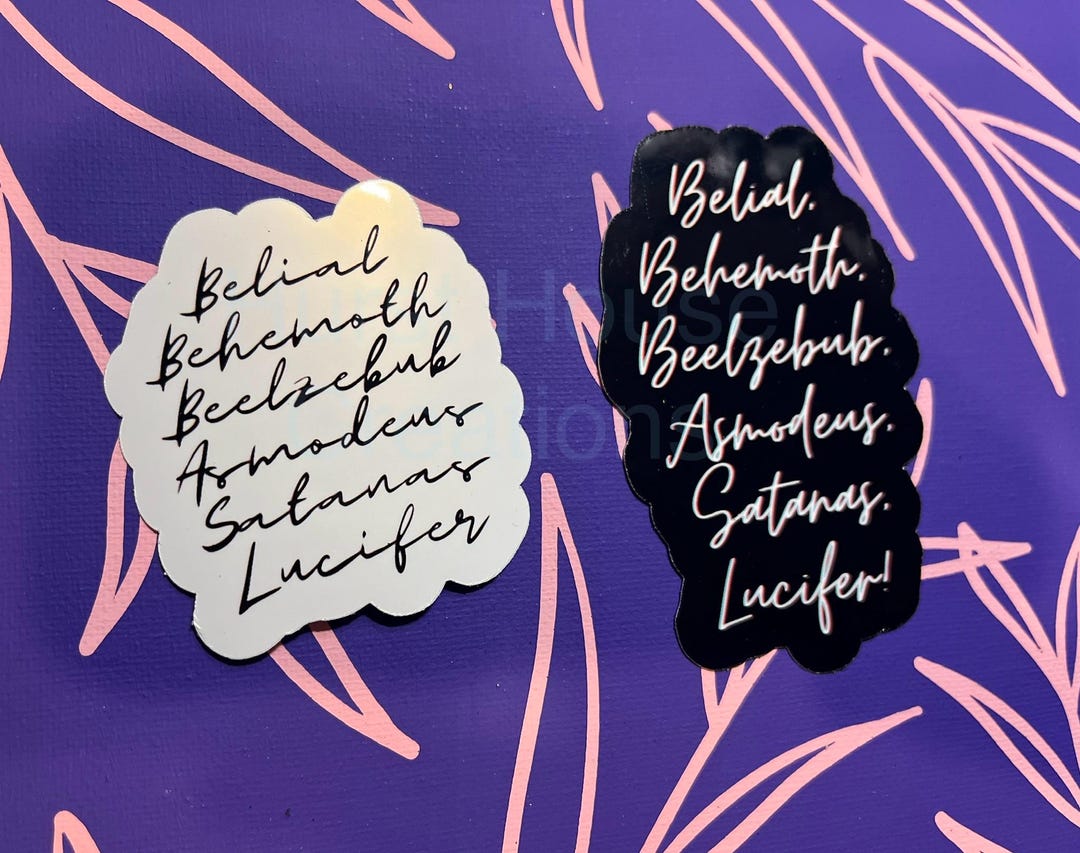 Belial
Behemoth
Beelzebub
Asmodeus
Satanas
Lucifer
Belial.
Behemoth.
Beelzebub.
Asmodeus.
Satanas.
Lucifer!
House
Creations